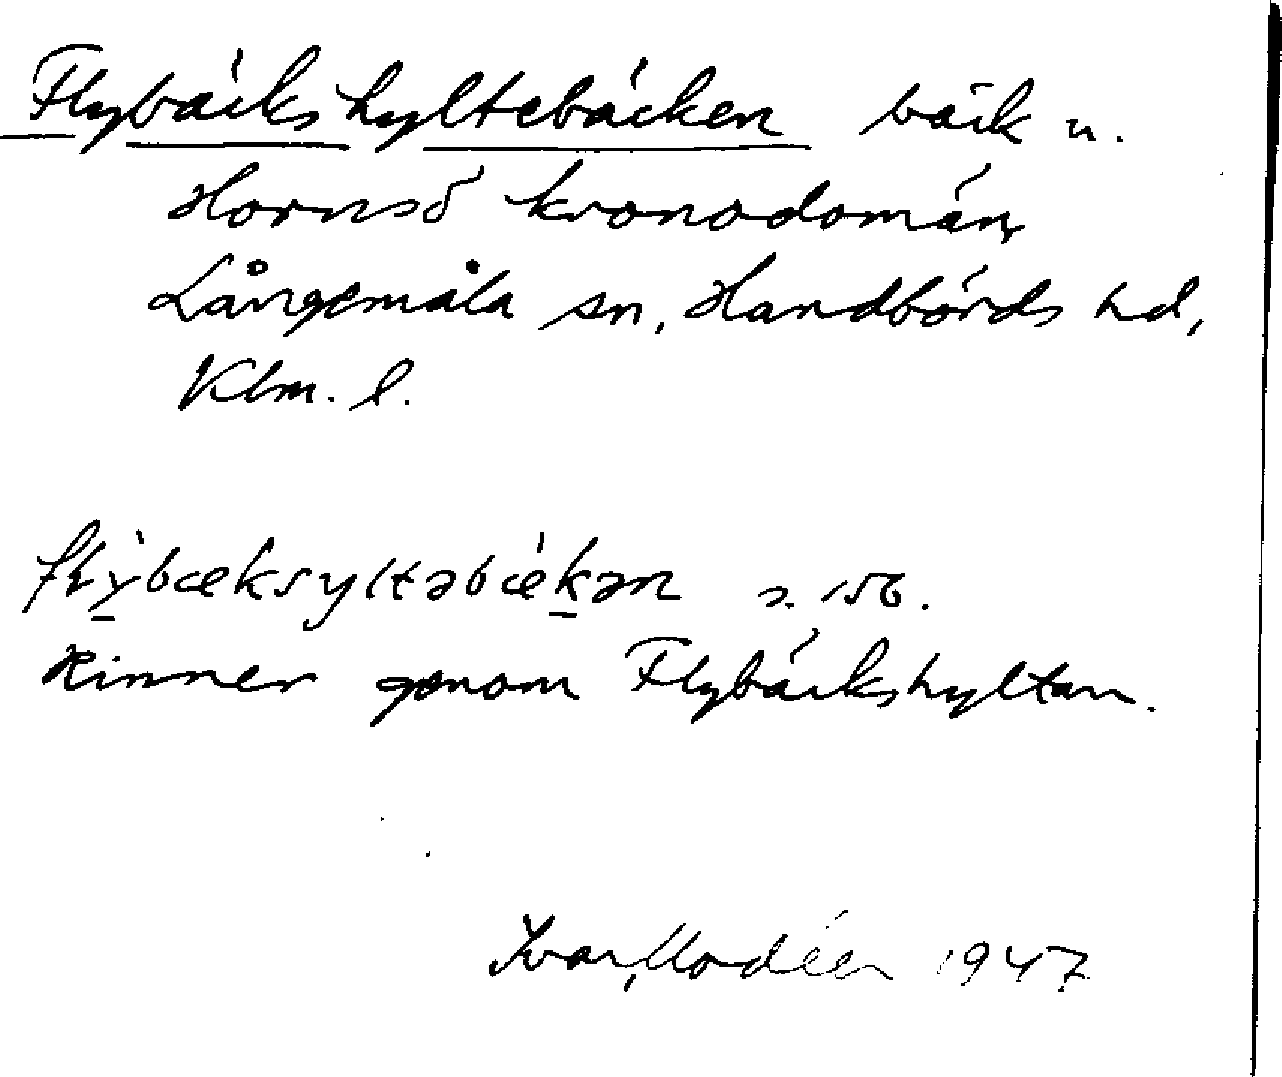 Flybäckshyltebäcken bäck u.
Hornsö kronodomän,
Långemåla sn, Handbörds hd,
Klm. l.
flýbæksyltəbækən s. 156.
Rinner genom Flybäckshyltan.
Ivar Modéer 1947